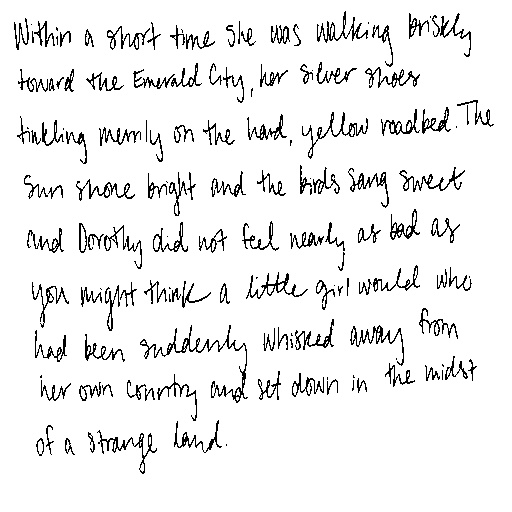 Within a short time she was walking briskly
toward the Emerald City, her silver shoes
tinkling merrily on the hard, yellow roadbed. The
sun shone bright and the birds sang sweet
and Dorothy did not feel nearly as bad as
you might think a little girl would who
had been suddenly whisked away from
her own country and set down in the midst
of a strange land.